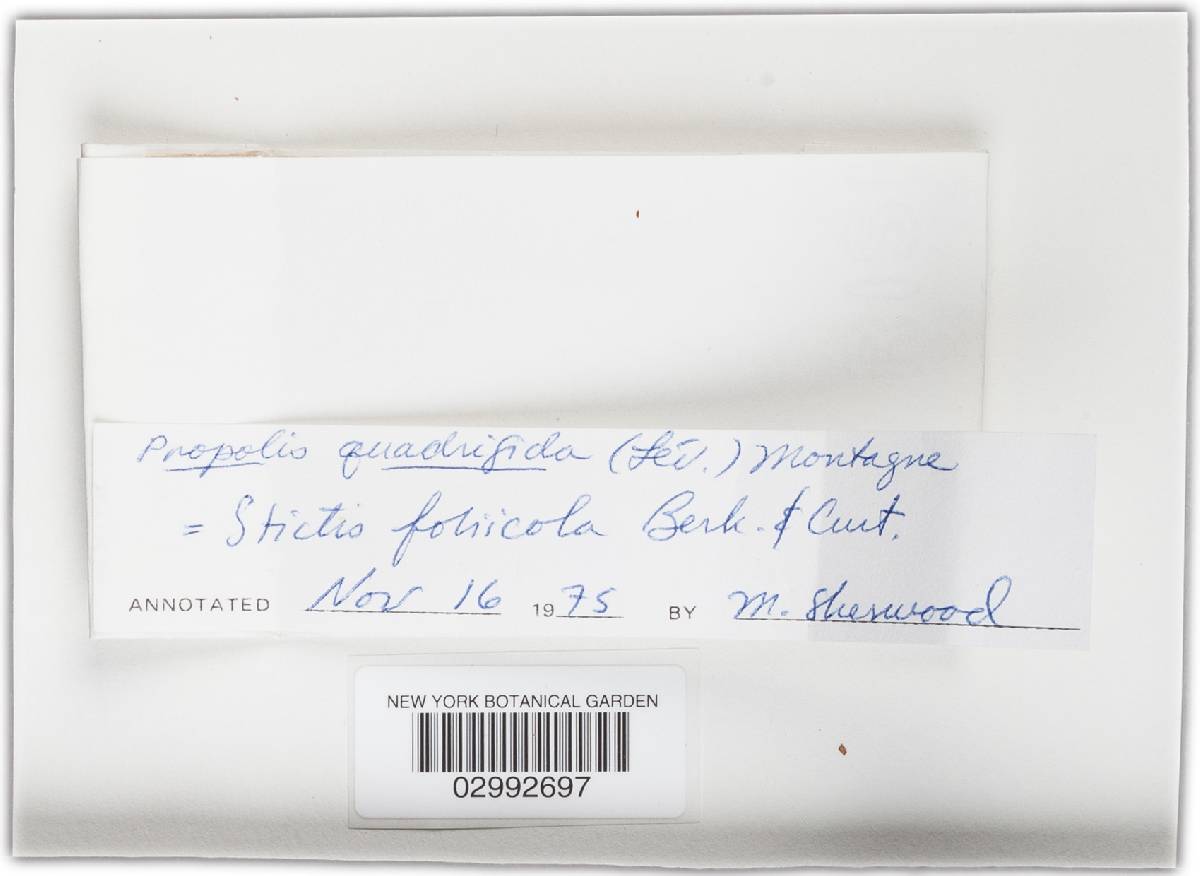 Propolis quadrifida (Lév.) Montagne
= Stictis foliicola Berk. & Curt.
ANNOTATED Nov 16 1975 BY M. Sherwood
NEW YORK BOTANICAL GARDEN
02992697